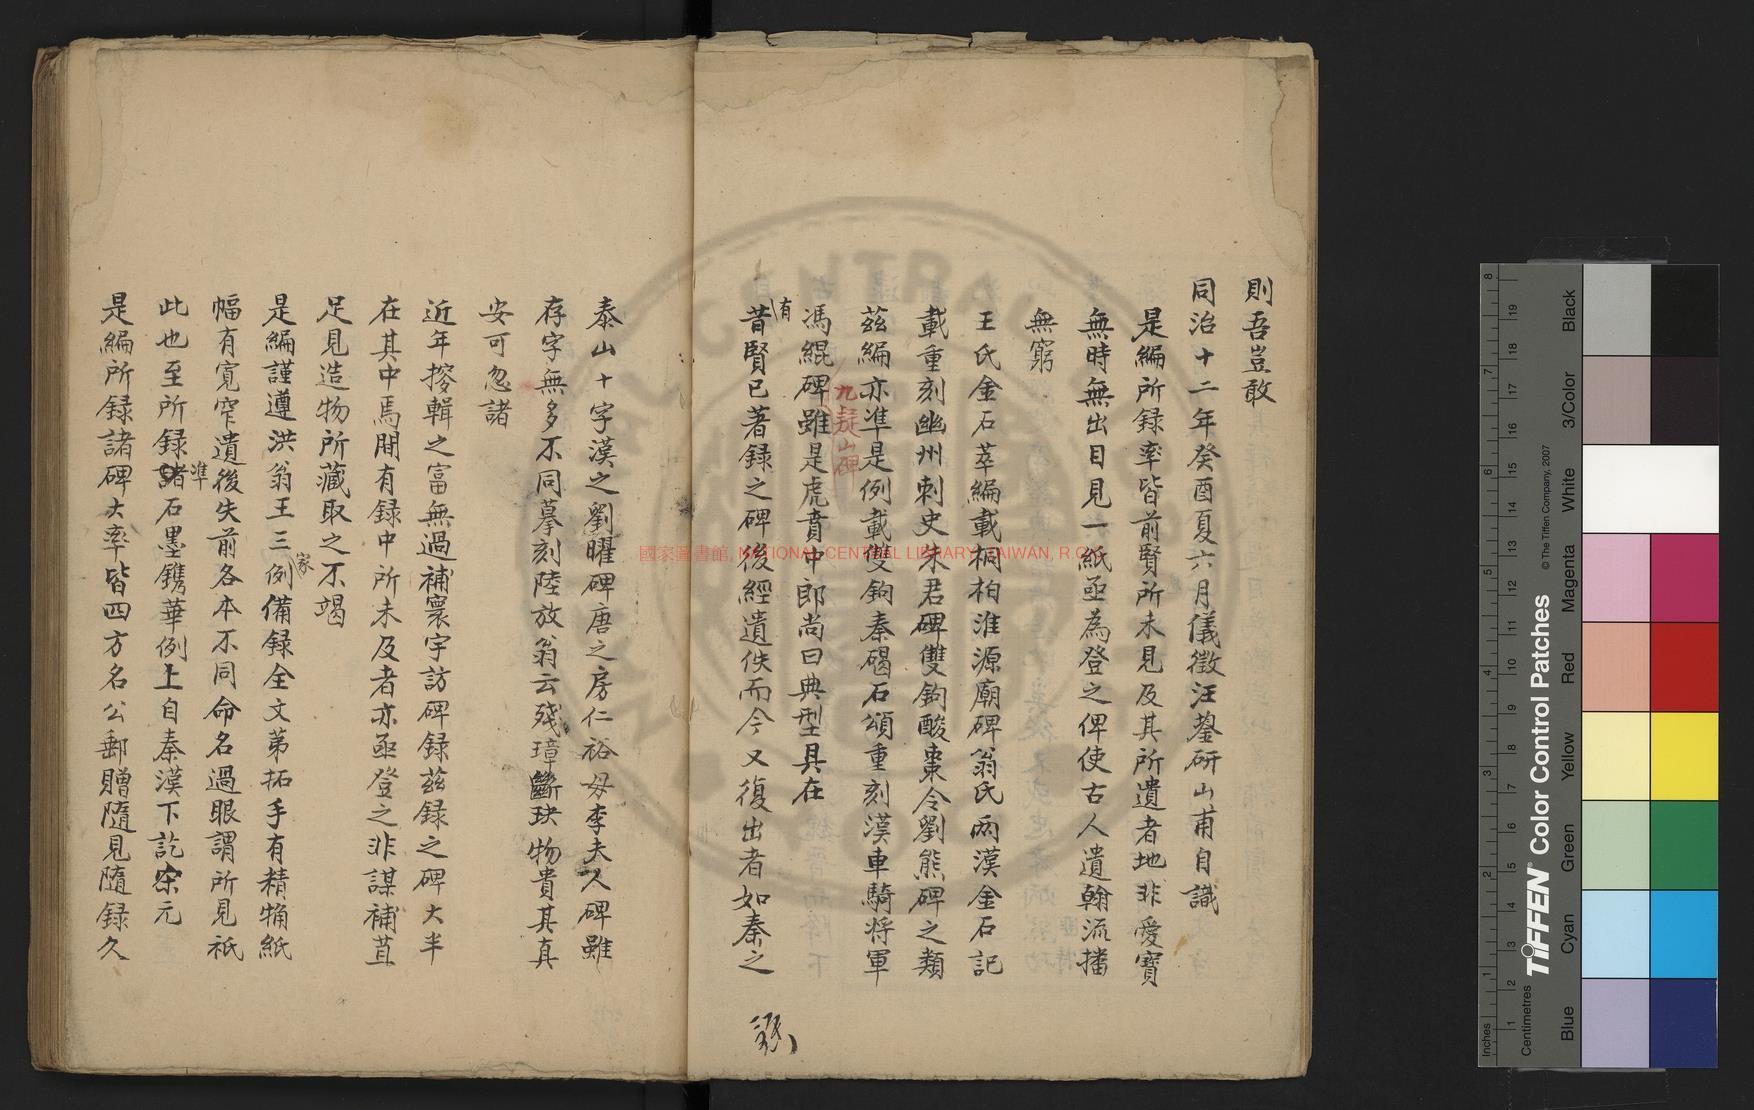 則吾豈敢
同治十二年癸酉夏六月儀徵汪鋆研山甫自識
是編所録率皆前賢所未見及其所遺者地非愛寶
無時無出目見一紙亟為登之俾使古人遺翰流播
無窮
王氏金石萃編載桐柏淮源廟碑翁氏兩漢金石記
載重刻幽州刺史朱君碑雙鉤酸棗令劉熊碑之類
兹編亦準是例載雙鉤秦碣石頌重刻漢車騎将軍
九疑山碑
馮緄碑雖是虎賁中郎尚曰典型具在
有
昔賢已著録之碑後經遺佚而今又復出者如秦之
泰山十字漢之劉曜碑唐之房仁裕母李夫人碑雖
存字無多不同摹刻陸放翁云殘璋斷玦物貴其真
安可忽諸
近年搜輯之富無過補寰宇訪碑録兹録之碑大半
在其中焉間有録中所未及者亦亟登之非謀補苴
足見造物所藏取之不竭
是編謹遵洪翁王三家例備録全文苐拓手有精觕紙
幅有寬窄遺後失前各本不同命名過眼謂所見祇
此也至所録諸石準墨鐫華例上自秦漢下訖宋元
是編所録諸碑大率皆四方名公郵贈隨見隨録久
國家圖書館, NATIONAL CENTRAL LIBRARY, TAIWAN, R.O.C
Inches
Centimetres
TIFFEN® Color Control Patches
© The Tiffen Company, 2007
Blue
Cyan
Green
Yellow
Red
Magenta
White
3/Color
Black